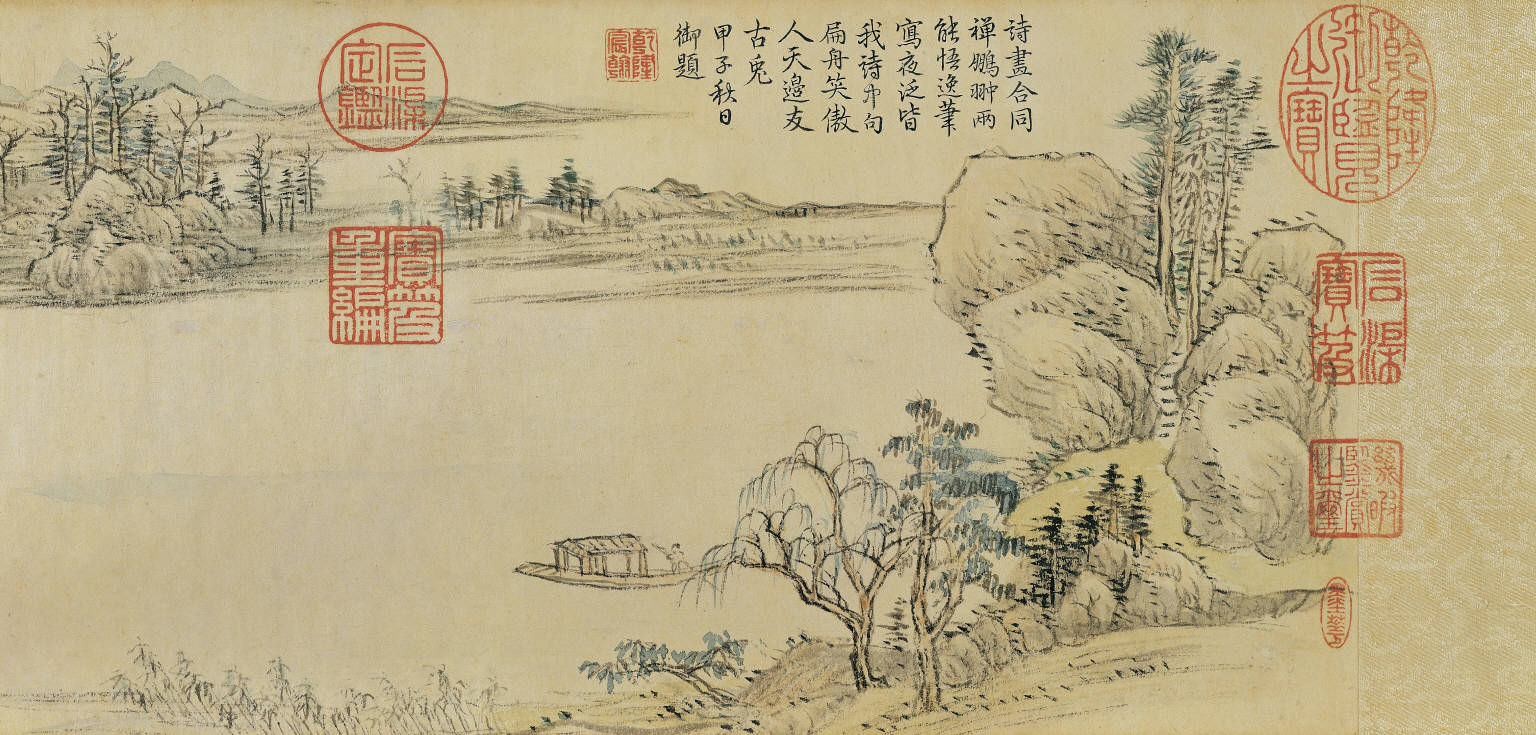 乾隆御覽之寶
石渠寶笈
幾暇鑒賞之璽
詩畫合同
禅鵬翀兩
能悟逸筆
寫夜泛皆
我詩中句
扁舟笑傲
人天邊友
古兔
甲子秋日
御題
乾隆宸翰
石渠定鑑
寶笈重編